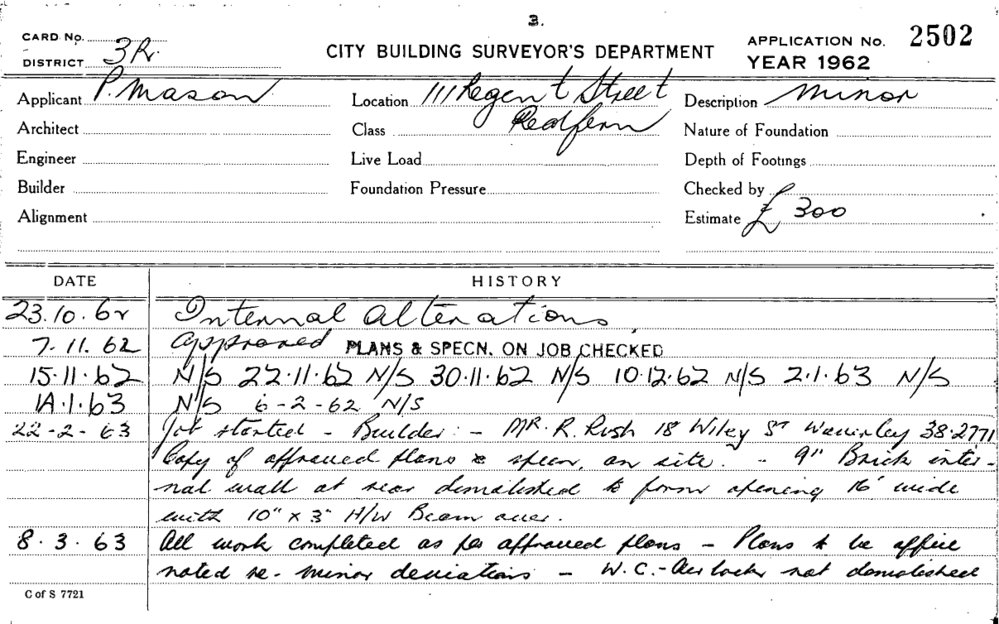 3.
CARD No.
DISTRICT 3R.
CITY BUILDING SURVEYOR'S DEPARTMENT
APPLICATION No. 2502
YEAR 1962
Applicant P. Mason
Location 111 Regent Street
Redfern
Description Minor
Architect
Class
Nature of Foundation
Engineer
Live Load
Depth of Footings
Builder
Foundation Pressure
Checked by
Alignment
Estimate £ 300
DATE HISTORY
23.10.62 Internal alterations
7.11.62 Approved PLANS & SPECN. ON JOB CHECKED
15.11.62 N/S 22.11.62 N/S 30.11.62 N/S 10.12.62 N/S 2.1.63 N/S
1A.1.63 N/S 6-2-62 N/S
22-2-63 Job started - Builder:- MR. R. Rush 18 Wiley St Waverley 38.2771
Copy of approved plans & specn. on site. - 9" Brick inter-
nal wall at rear demolished to form opening 16' wide
with 10" x 3" H/W Beam over.
8.3.63 All work completed as per approved plans - Plans to be office
noted re- minor deviations - W.C.-Airlock not demolished
C of S 7721